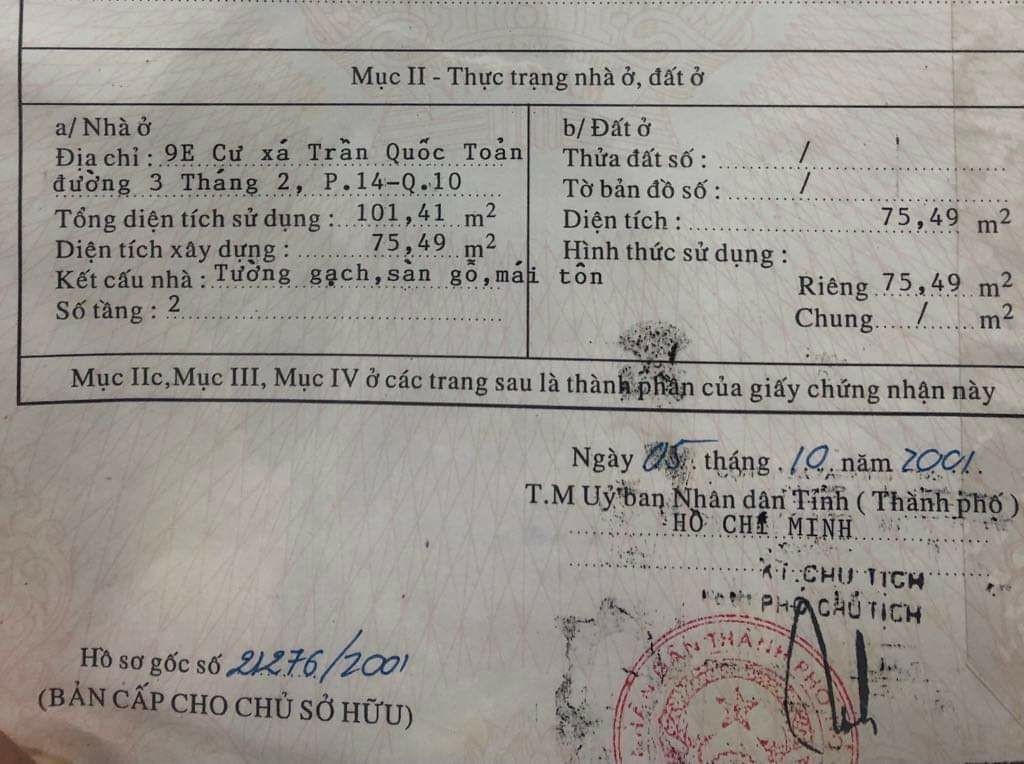 Mục II - Thực trạng nhà ở, đất ở
a/ Nhà ở
Địa chỉ : 9E Cư xá Trần Quốc Toản
đường 3 Tháng 2, P.14-Q.10
Tổng diện tích sử dụng : 101,41 m²
Diện tích xây dựng : 75,49 m²
Kết cấu nhà : Tường gạch,sàn gỗ,mái tôn
Số tầng : 2
b/ Đất ở
Thửa đất số : /
Tờ bản đồ số : /
Diện tích : 75,49 m²
Hình thức sử dụng :
Riêng 75,49 m²
Chung / m²
Mục IIc,Mục III, Mục IV ở các trang sau là thành phần của giấy chứng nhận này
Ngày 05 tháng 10 năm 2001.
T.M Uỷ ban Nhân dân Tỉnh ( Thành phố )
HỒ CHÍ MINH
KT.CHỦ TỊCH
PHÓ CHỦ TỊCH
BAN THÀNH PHỐ
Hồ sơ gốc số 21276/2001
(BẢN CẤP CHO CHỦ SỞ HỮU)